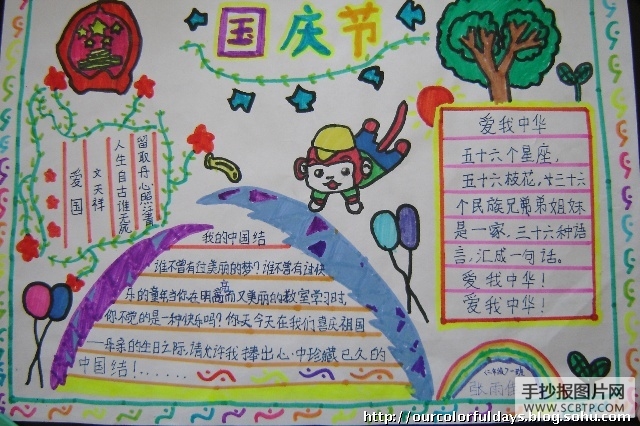 国庆节
爱国
文天祥
人生自古谁无死
留取丹心照汗青
我的中国结
谁不曾有过美丽的梦?谁不曾有过快
乐的童年当你在明亮而又美丽的教室学习时,
你不觉的是一种快乐吗?你天今天在我们喜庆祖国
——母亲的生日之际,请允许我捧出心中珍藏已久的
中国结!......
爱我中华
五十六个星座,
五十六枝花,廿三十六
个民族兄弟弟姐妹
是一家,三十六种语
言,汇成一句话。
爱我中华!
爱我中华!
手抄报图片网
WWW.SCBTP.COM
http://ourcolorfuldays.blog.sohu.com